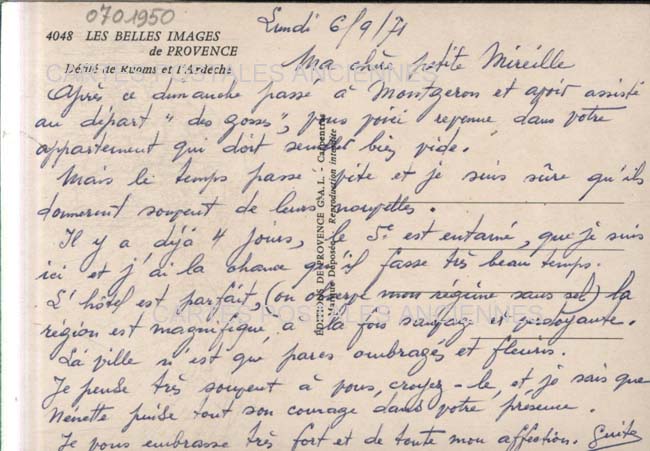 0701950
Lundi 6/9/71
4048 LES BELLES IMAGES
de PROVENCE
Défilé de Ruoms et l'Ardèche
CARTES POSTALES ANCIENNES
Ma chère petite Mireille
Après ce dimanche passé à Montgeron et avoir assisté
au départ "des gosses", vous voici revenue dans votre
appartement qui doit sembler bien vide.
Mais le temps passe vite et je suis sûre qu'ils
donneront souvent de leurs nouvelles.
Il y a déjà 4 jours, le 5e est entamé, que je suis
ici et j'ai la chance qu'il fasse très beau temps.
L'hôtel est parfait, (on observe mon régime sans sel) la
région est magnifique, à la fois sauvage et verdoyante.
La ville n'est que parcs ombragés et fleuris.
Je pense très souvent à vous, croyez-le, et je sais que
Nénette puise tout son courage dans votre présence.
Je vous embrasse très fort et de toute mon affection. Guite
ÉDITIONS DE PROVENCE G.A.L. - Carpentras
Marque Déposée Reproduction interdite
CARTES POSTALES ANCIENNES